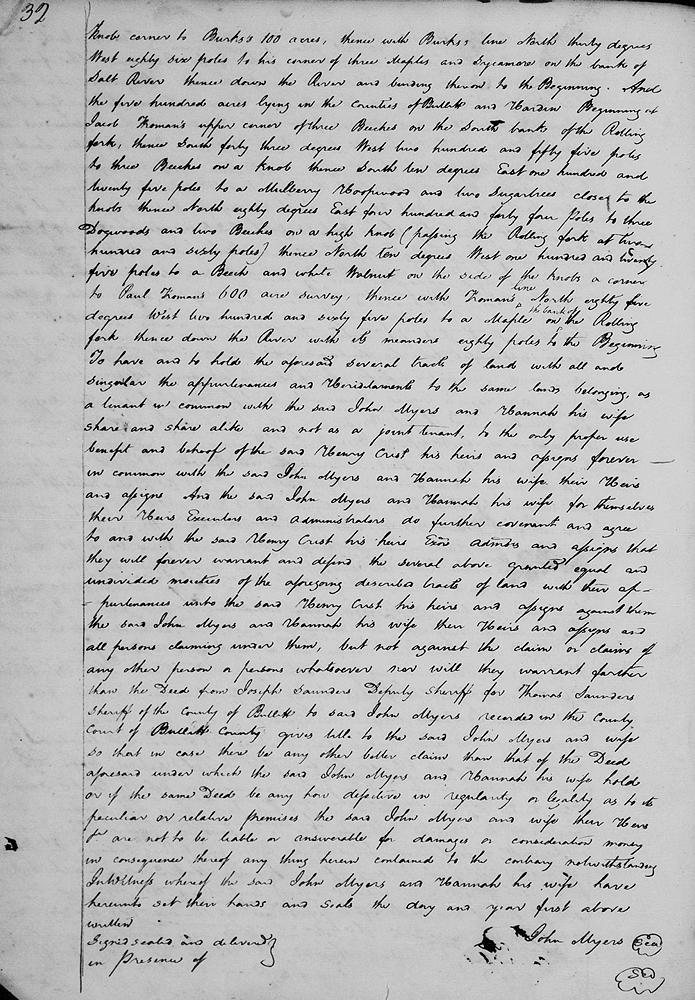 32
Knob corner to Burks's 100 acres, thence with Burks's line North thirty degrees
West eighty six poles to his corner of three Maples and Sycamore on the bank of
Salt River thence down the River and binding thereon to the Beginning. And
the five hundred acres lying in the Counties of Bullitt and Hardin Beginning at
Jacob Froman's upper corner of three Beeches on the South bank of the Rolling
fork, thence South forty three degrees West two hundred and fifty five poles
to three Beeches on a Knob thence South ten degrees East one hundred and
twenty five poles to a Mulberry Hoopwood and two Sugartrees close to the
knobs thence North eighty degrees East four hundred and forty four Poles to three
Dogwoods and two Beeches on a high knob (passing the Rolling fork at two
hundred and sixty poles) thence North ten degrees West one hundred and twenty
five poles to a Beech and white Walnut on the side of the knobs a corner
to Paul Froman's 600 acre survey, thence with Froman's line North eighty five
degrees West two hundred and sixty five poles to a Maple on the bank of the Rolling
fork thence down the River with its meanders eighty poles to the Beginning
To have and to hold the aforesaid several tracts of land with all and
singular the appurtenances and Heriditaments to the same lands belonging, as
a tenant in common with the said John Myers and Hannah his wife
share and share alike and not as a joint tenant, to the only proper use
benefit and behoof of the said Henry Crist his heirs and assigns forever
in common with the said John Myers and Hannah his wife their Heirs
and assigns And the said John Myers and Hannah his wife for themselves
their Heirs Executors and administrators do further covenant and agree
to and with the said Henry Crist his heirs Exors admrs and assigns that
they will forever warrant and defend the several above granted equal and
undivided moieties of the aforegoing described tracts of land with their ap-
-purtenances unto the said Henry Crist his heirs and assigns against them
the said John Myers and Hannah his wife their Heirs and assigns and
all persons claiming under them, but not against the claim or claims of
any other person or persons whatsoever nor will they warrant farther
than the Deed from Joseph Saunders Deputy Sheriff for Thomas Saunders
Sheriff of the County of Bullitt to said John Myers recorded in the County
Court of Bullitt County gives title to the said John Myers and wife
so that in case there be any other better claim than that of the Deed
aforesaid under which the said John Myers and Hannah his wife hold
or if the same Deed be any how defective in regularity or legality as to its
peculiar or relative premises the said John Myers and wife their Heirs
&c are not to be liable or answerable for damages or consideration money
in consequence thereof any thing herein contained to the contrary notwithstanding
In Witness whereof the said John Myers and Hannah his wife have
hereunto set their hands and seals the day and year first above
written
Signed sealed and delivered }
in Presence of
John Myers Seal
Seal